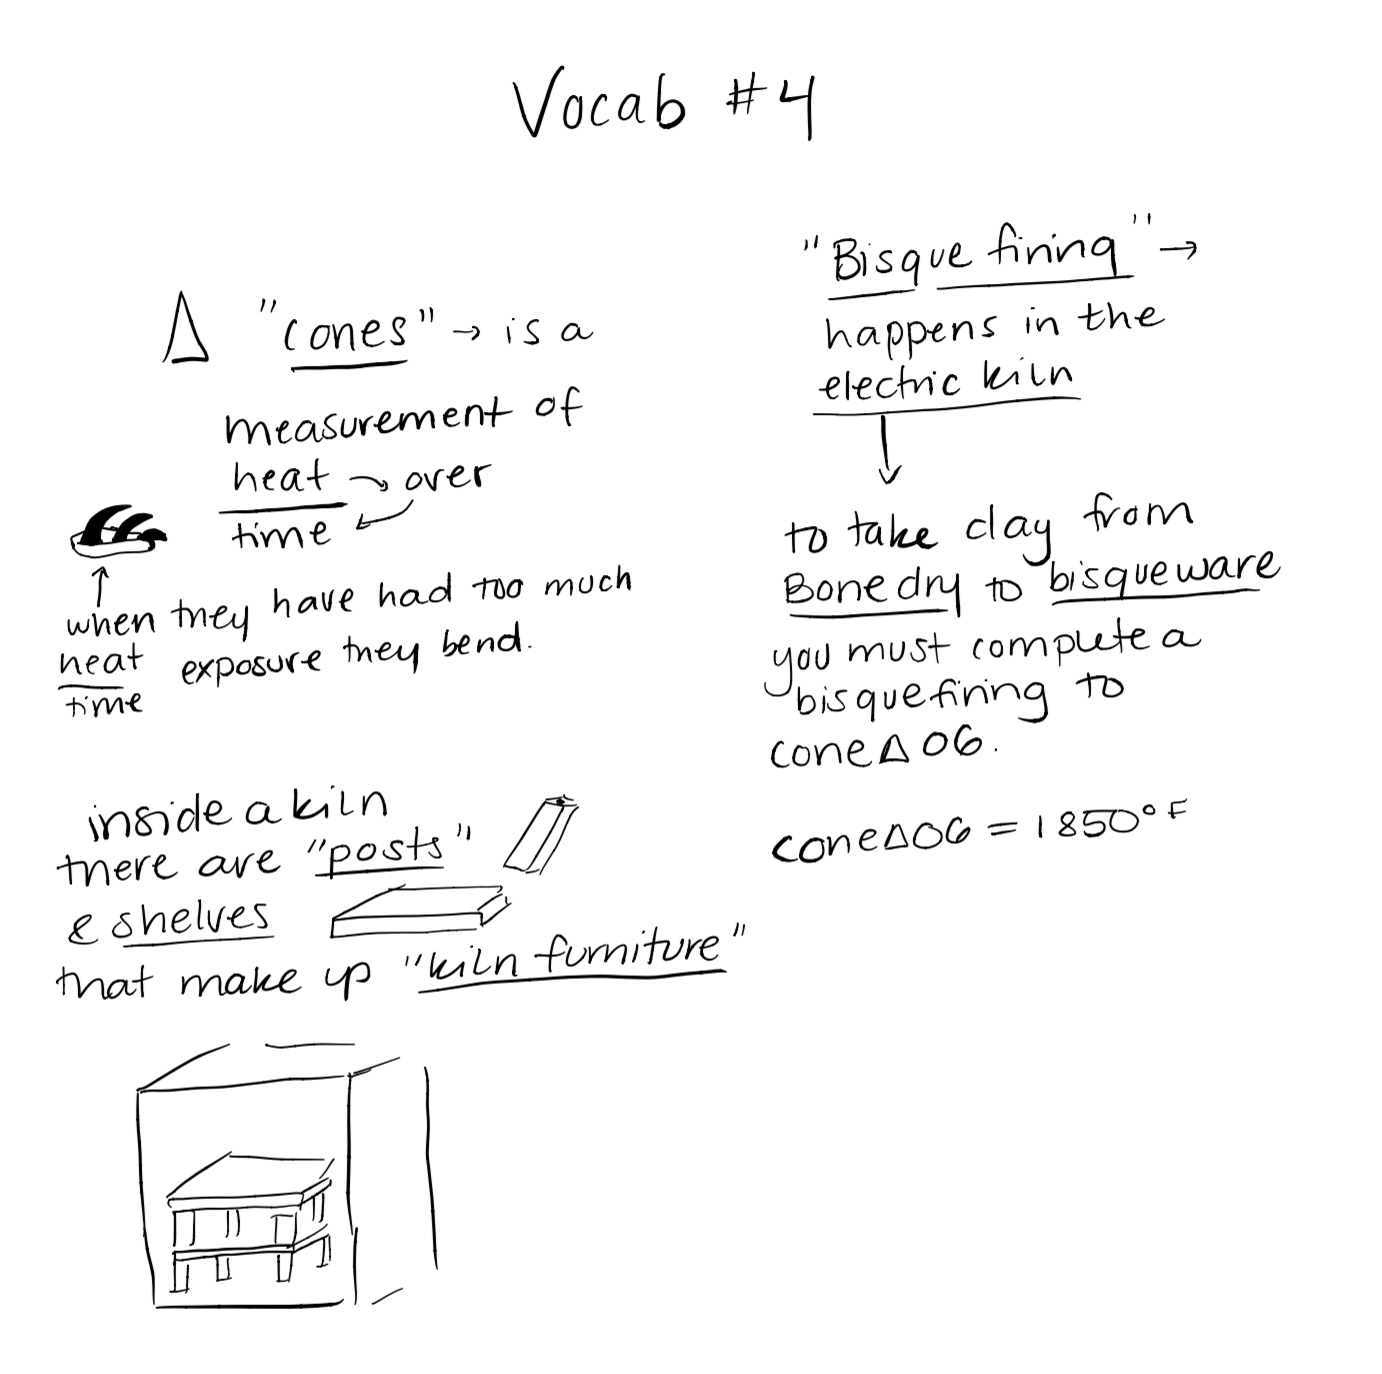 Vocab #4
Δ "cones" → is a
measurement of
heat → over
time
when they have had too much
heat exposure they bend.
time
inside a kiln
there are "posts"
& shelves
that make up "kiln furniture"
"Bisque firing" →
happens in the
electric kiln
to take clay from
Bone dry to bisqueware
you must complete a
bisque firing to
cone Δ 06.
cone Δ 06 = 1850° F